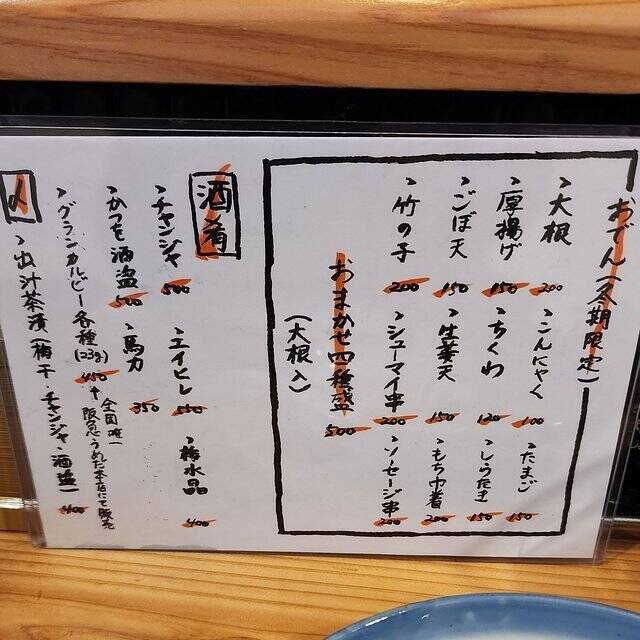 おでん(冬期限定)
、大根 200
、こんにゃく 100
、たまご 150
、厚揚げ 150
、ちくわ 120
、しらたき 150
、ごぼ天 150
、生姜天 150
、もち巾着 200
、竹の子 200
、シューマイ串 200
、ソーセージ串 200
おまかせ四種盛 500
(大根入)
酒肴
、チャンジャ 500
、エイヒレ 550
、梅水晶 400
、かつを酒盗 500
、馬力 350
、グランカルビー各種(23g) 450
全国唯一
阪の心うめだ本店にて販売
〆
、出汁茶漬(梅干・チャンジャ・酒盗) 400